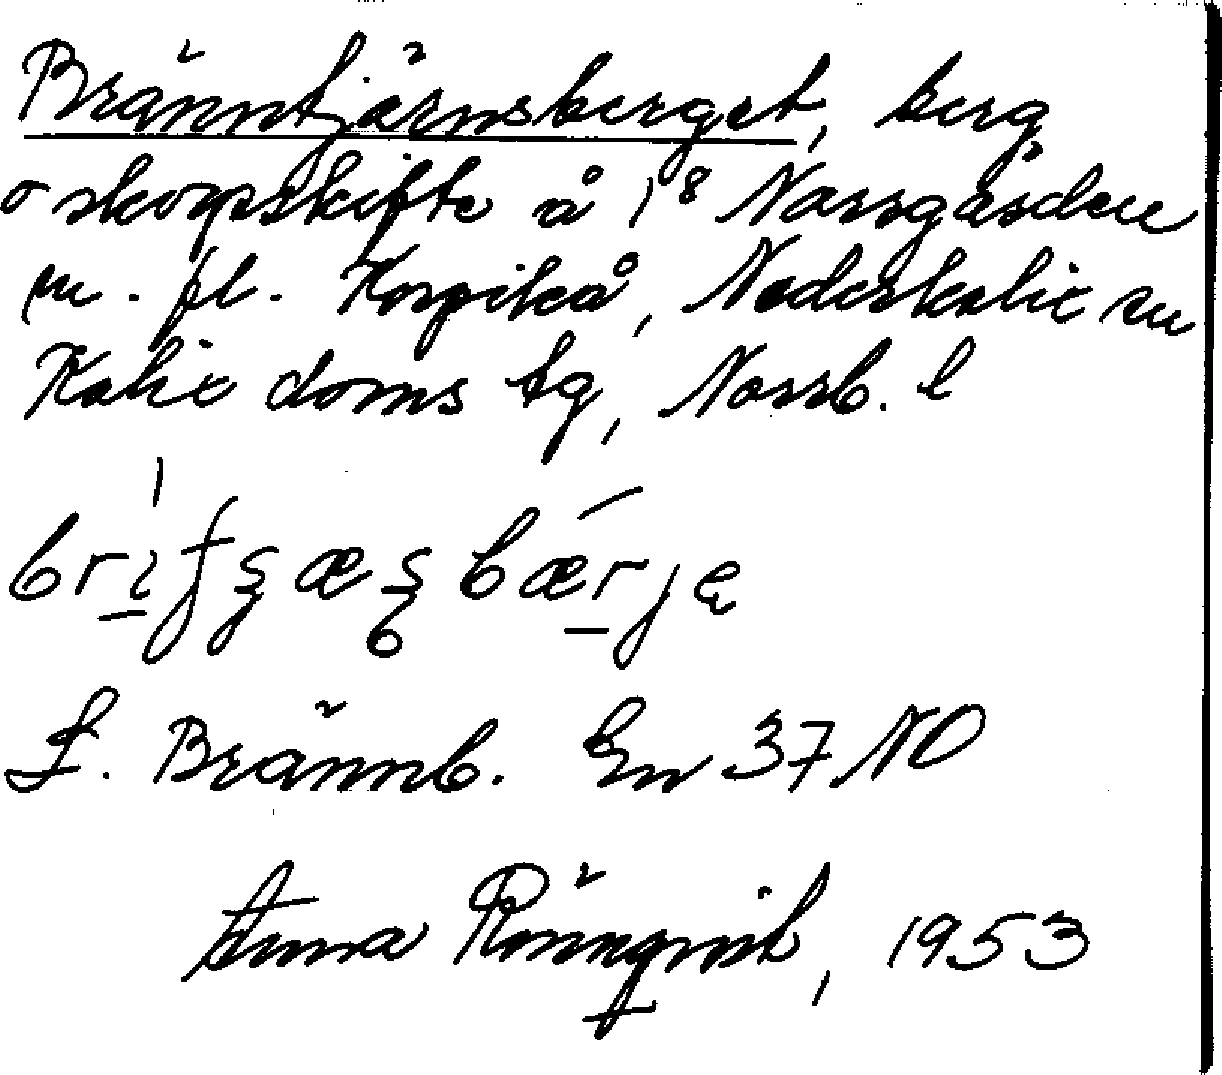 Bränntjärnsberget, berg
o skogsskifte å 1⁸ Norrgården
m. fl. Korpikå, Nederkalix sn
Kalix doms tg, Norrb. l
L. Brännb. En 37 NO
Anna Rönnqvist, 1953